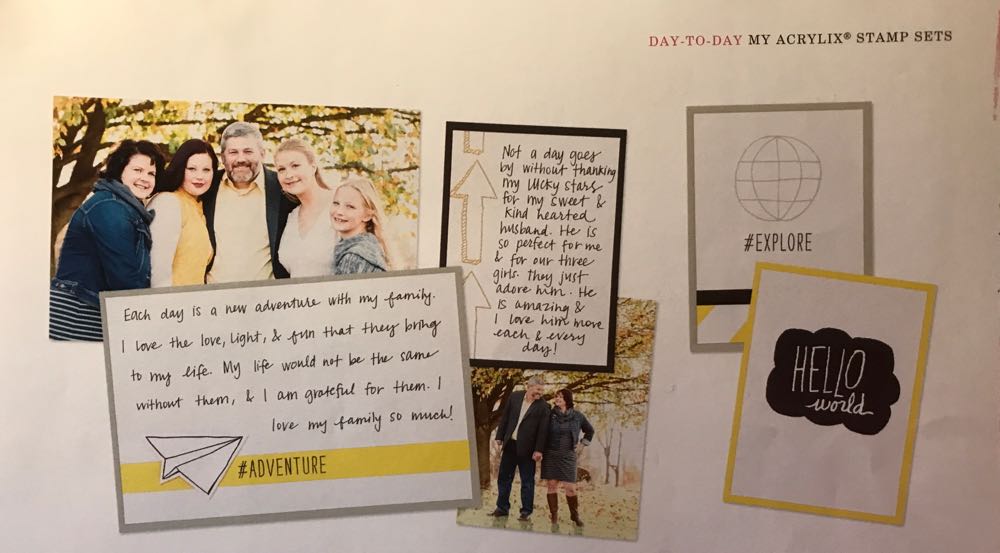 DAY-TO-DAY MY ACRYLIX® STAMP SETS
Not a day goes
by without thanking
my lucky stars
for my sweet &
kind hearted
husband. He is
so perfect for me
& for our three
girls. They just
adore him. He
is amazing &
I love him more
each & every
day!
#EXPLORE
Each day is a new adventure with my family.
I love the love, light, & fun that they bring
to my life. My life would not be the same
without them, & I am grateful for them. I
love my family so much!
#ADVENTURE
HELLO
world